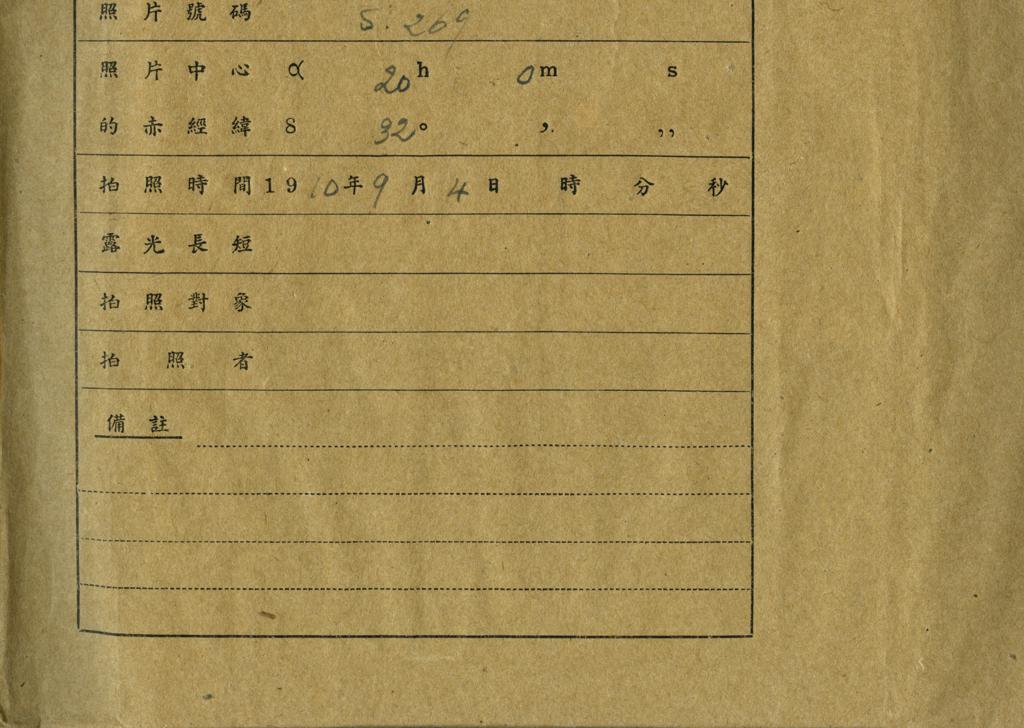 照片號碼 S. 209
照片中心 α 20h 0m s
的赤經緯 δ 32° ′ ″
拍照時間 1910年9月4日 時 分 秒
露光長短
拍照對象
拍照者
備註